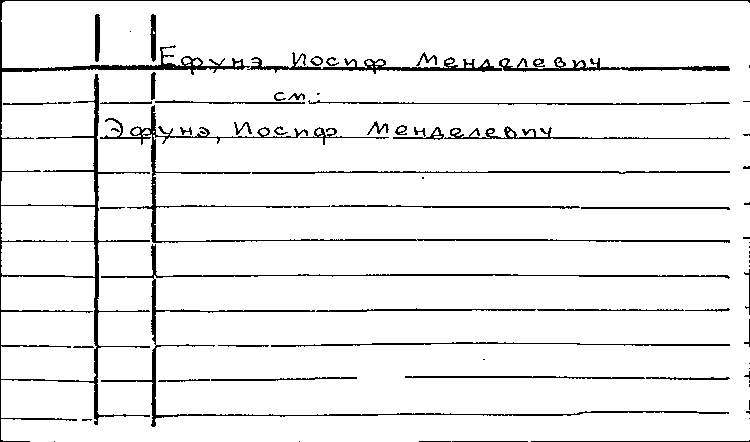 Ефунэ, Иосиф Менделевич
см.:
Эфунэ, Иосиф Менделевич